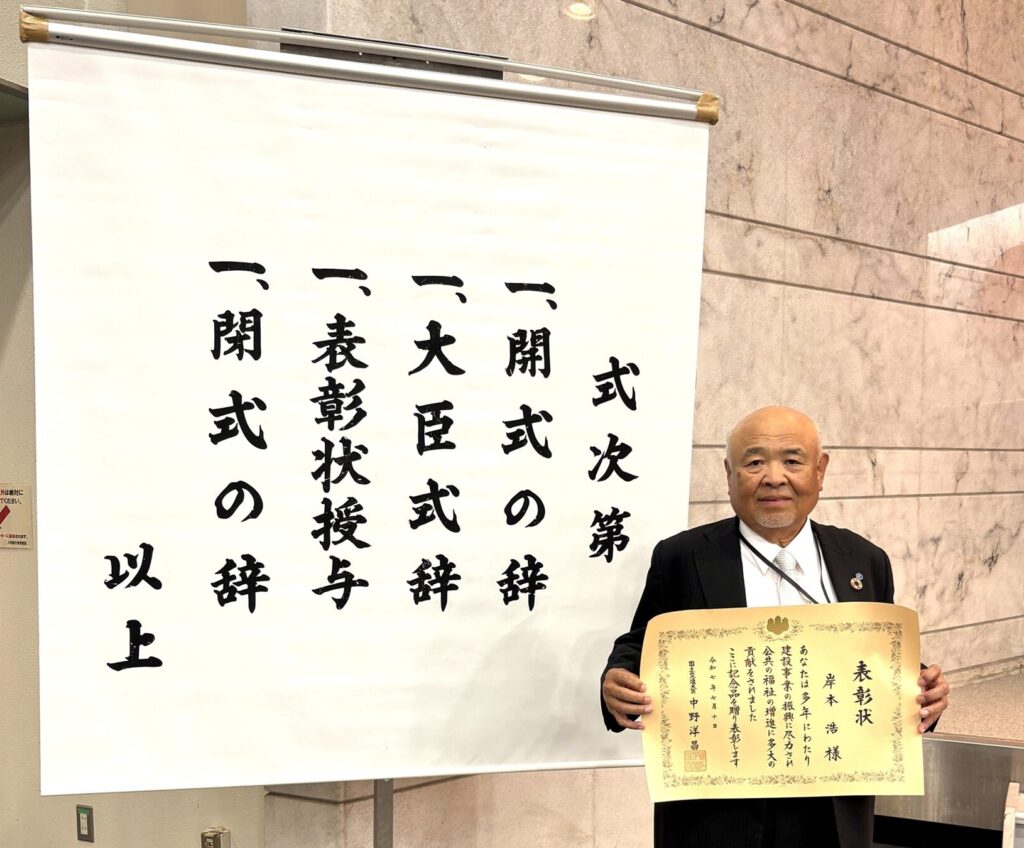 式次第
一、開式の辞
一、大臣式辞
一、表彰状授与
一、閉式の辞
以上
表彰状
岸本 浩 様
あなたは多年にわたり
建設事業の振興に尽力され
公共の福祉の増進に多大の
貢献をされました
ここに記念品を贈り表彰します
令和七年七月十日
国土交通大臣 中野洋昌